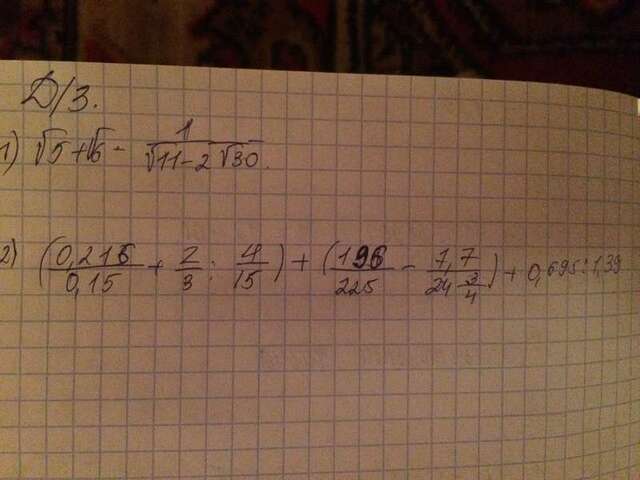 Д/З.
1) √5 + √6 - 1/√(11-2√30).
2) (0,216/0,15 + 2/3 : 4/15) + (196/225 - 7,7/(24 3/4)) + 0,695 : 1,39